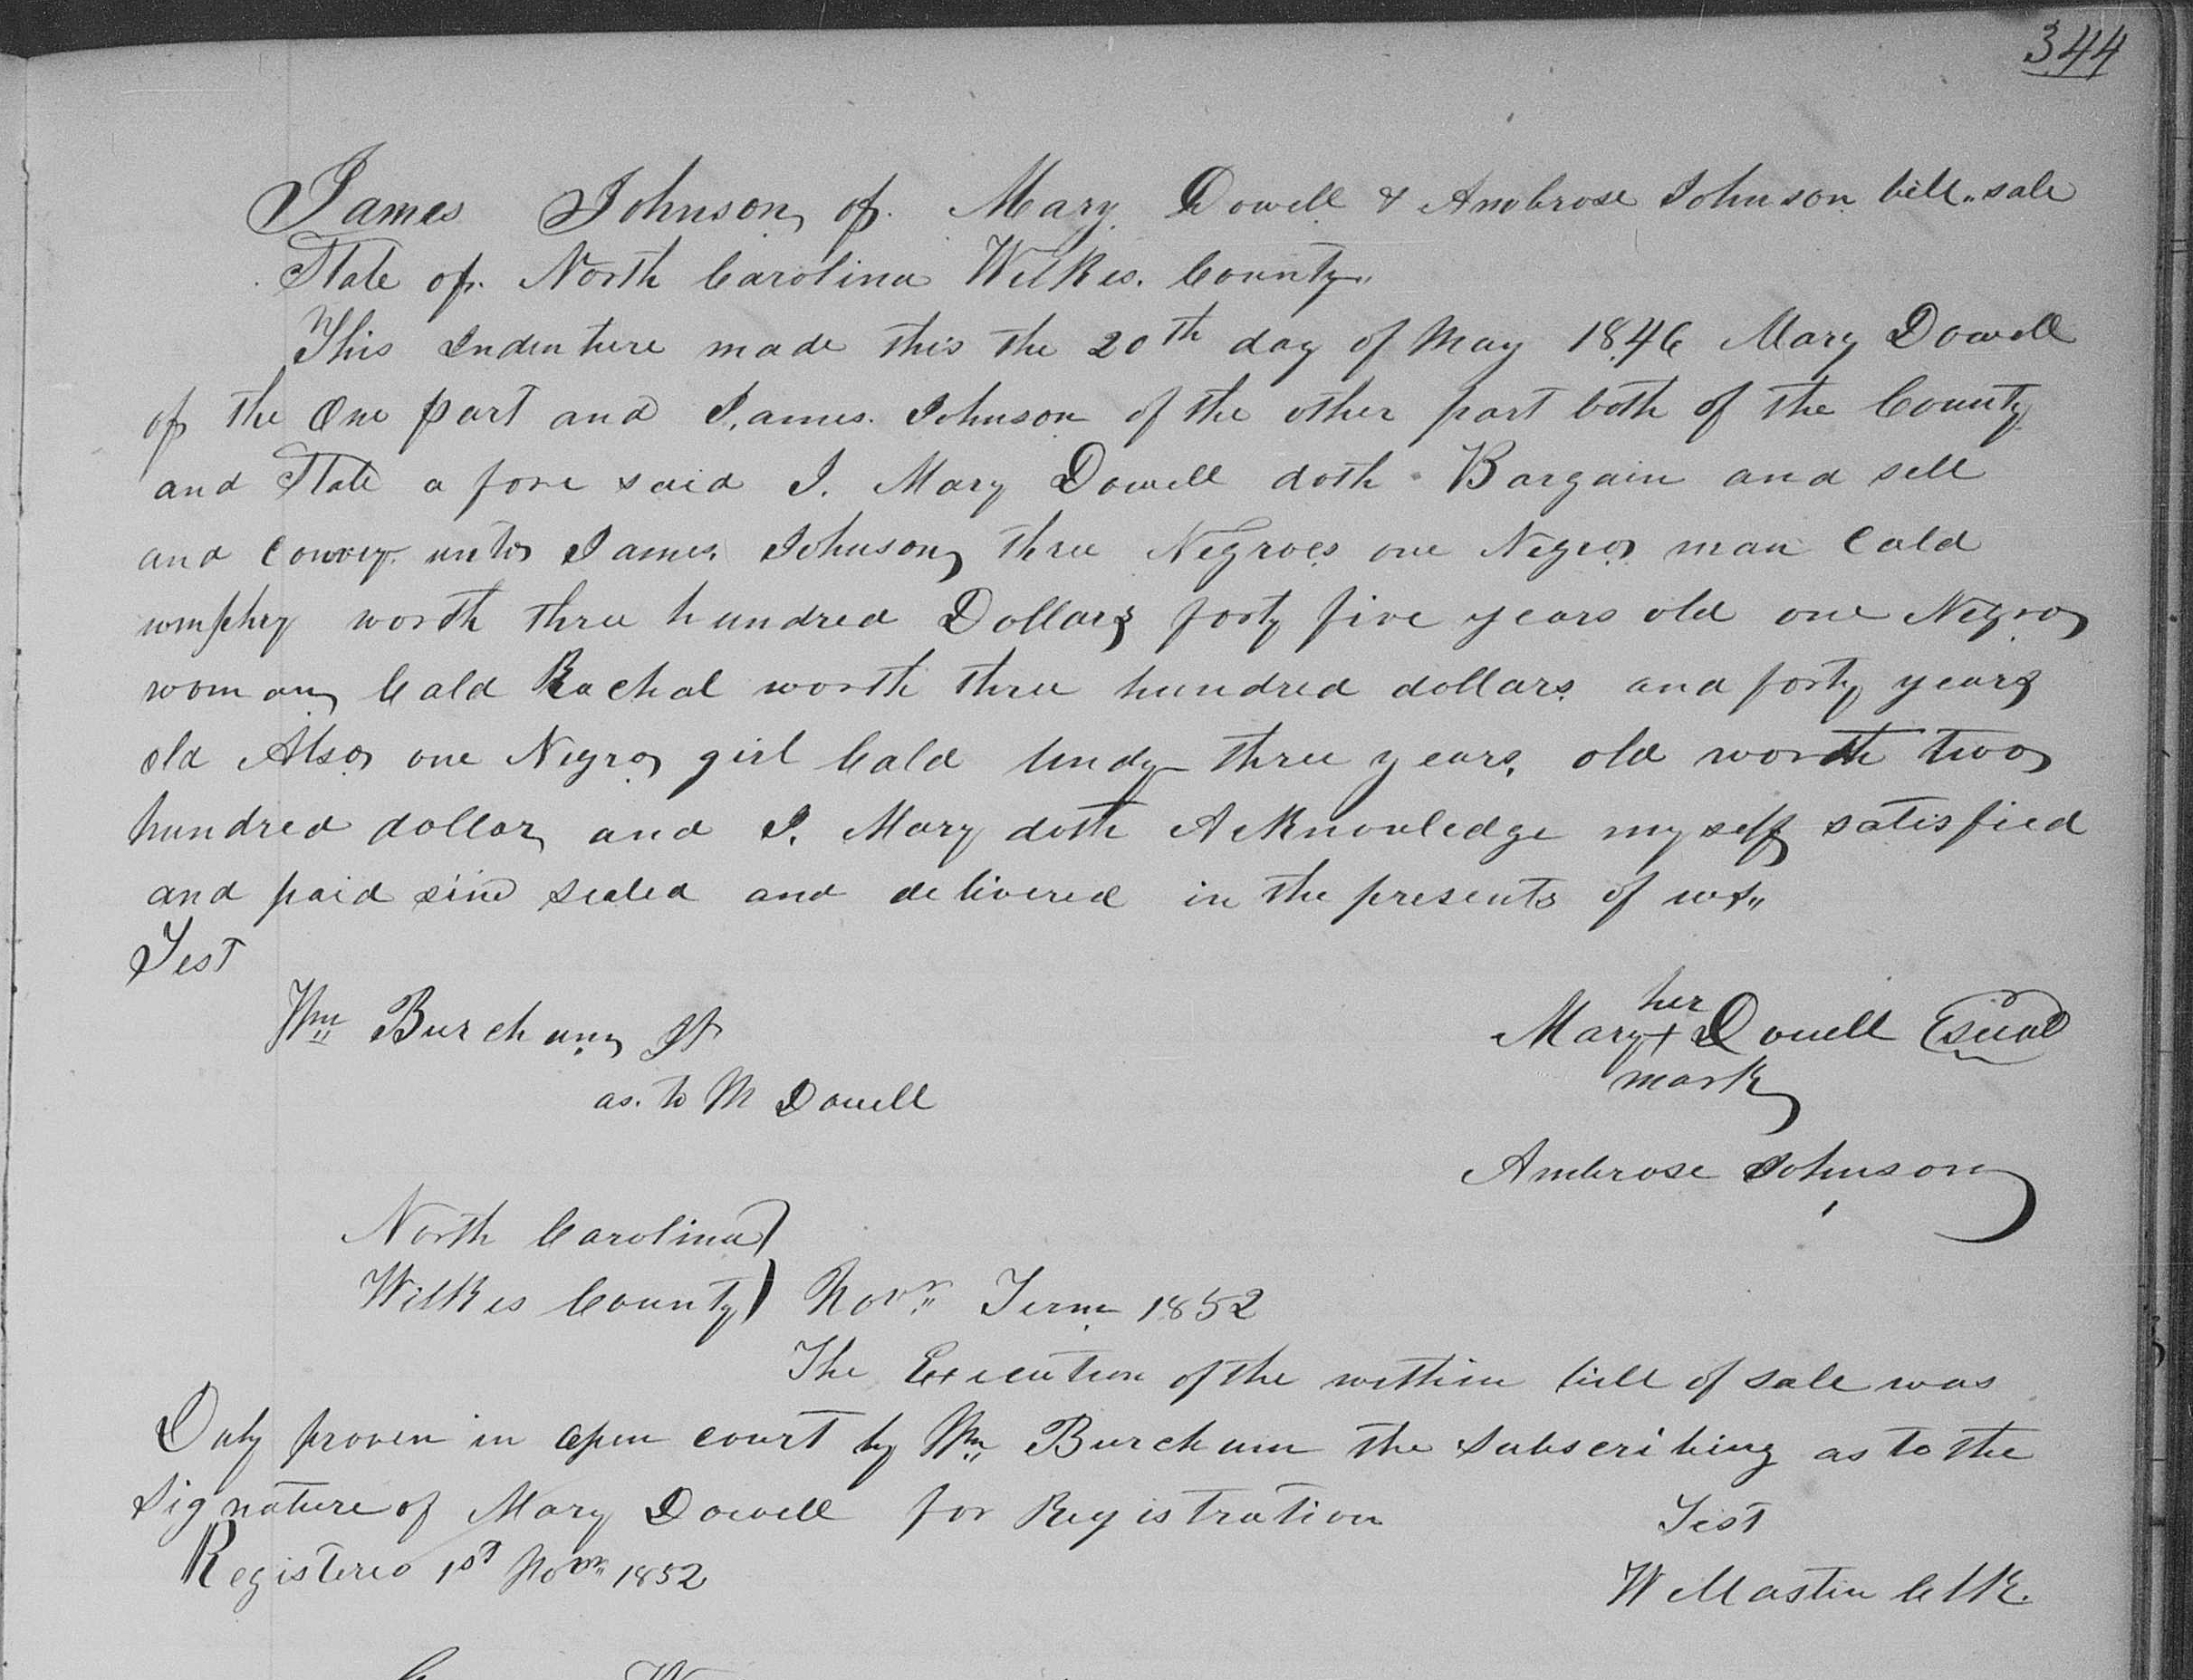 344
James Johnson of Mary Dowell & Ambrose Johnson bill " sale
State of North Carolina Wilkes County "
This Indenture made this the 20th day of May 1846 Mary Dowell
of the One part and James Johnson of the other part both of the County
and State a fore said I. Mary Dowell doth Bargain and sell
and Convey unto James Johnson three Negroes one Negro man Cald
umphry worth three hundred Dollars forty five years old one Negro
woman Cald Rachal worth three hundred dollars and forty years
old Also one Negro girl Cald lindy three years old worth two
hundred dollar and I. Mary doth Acknowledge my self satisfied
and paid sind sealed and delivered in the presents of us "
Test
Wm Burcham
as. to M Dowell
her
Mary + Dowell seal
mark
Ambrose Johnson
North Carolina )
Wilkes County ) Novr " Term 1852
The Execution of the within bill of sale was
Duly proven in open court by Wm Burcham the Subscribing as to the
Signature of Mary Dowell for Registration
Test
Registered 1st Novr 1852
W Mastin Clk.